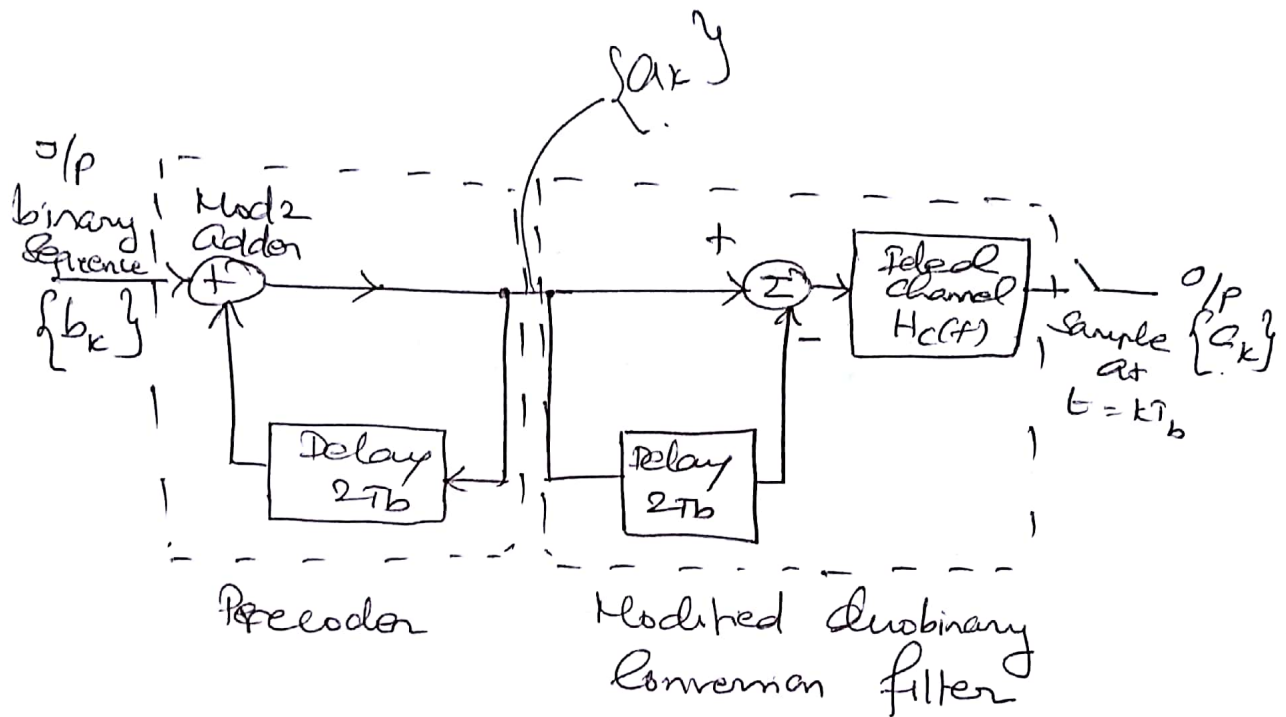 {ak}
o/p
binary
Sequence
{bk}
Mod2
adder
+
+
Σ
-
Ideal
Channel
Hc(f)
Sample
at
t = kTb
o/p
{ak}
Delay
2Tb
Delay
2Tb
Precoder
Modified duobinary
Conversion filter